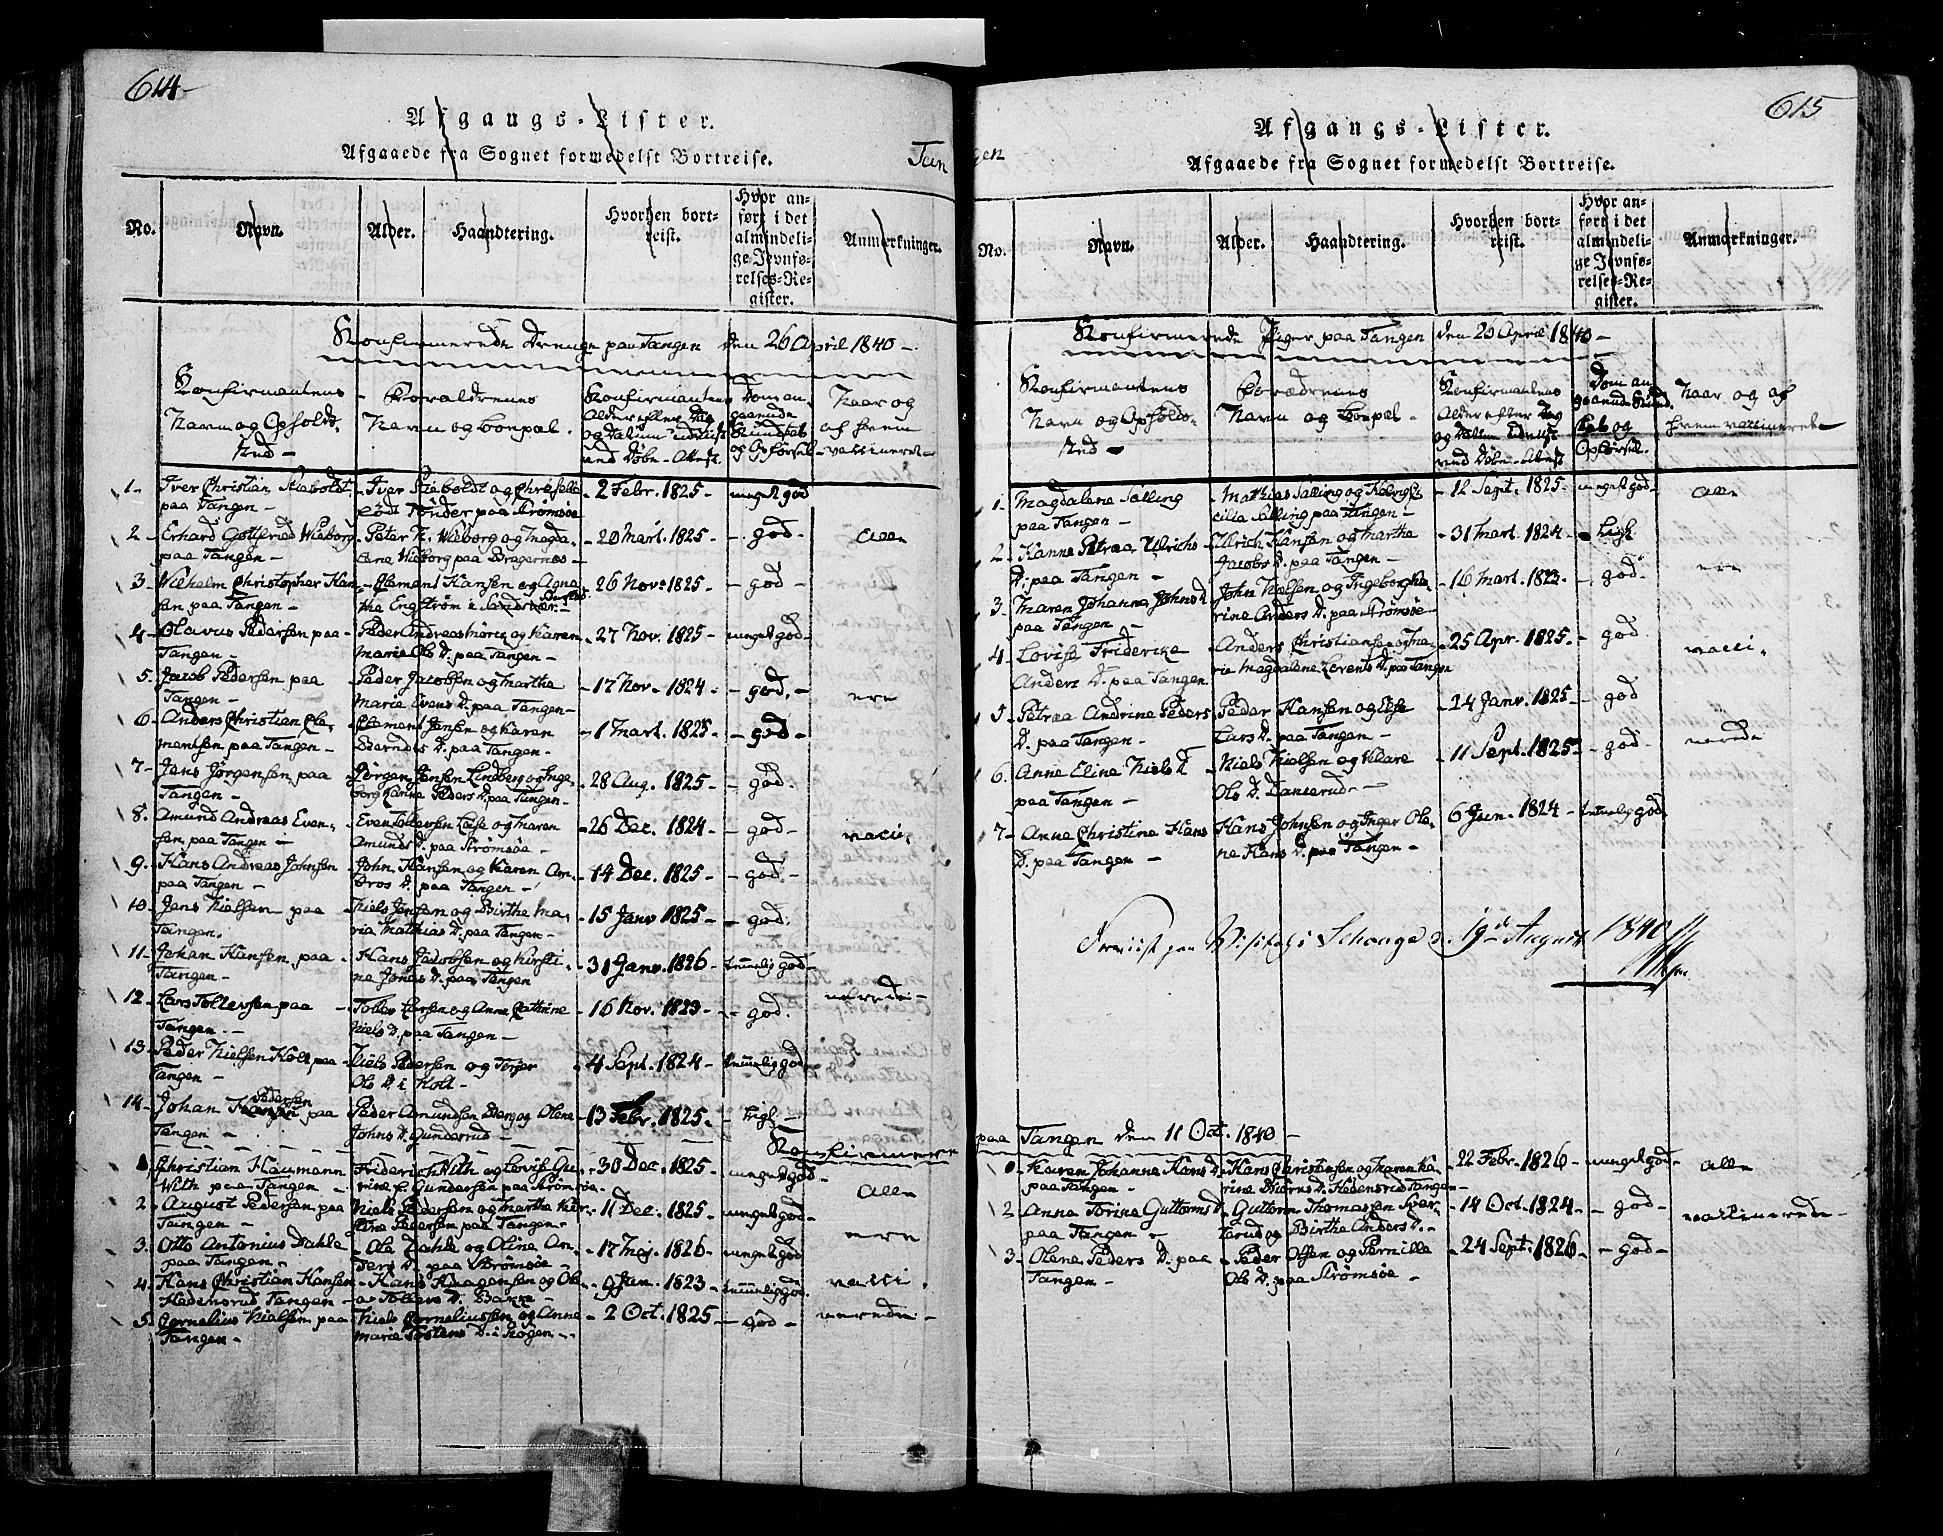 614
Afgangs-Lister.
Afgaaede fra Sognet formedelst Bortreise.
Tan
No. Navn. Alder. Haandtering. Hvorhen bortreist. Hvor anført i det almindelige Jevnførelses-Register. Anmærkninger.
Konfirmerede Drenge paa Tangen den 26 April 1840
Konfirmantens Navn og Opholds Sted
Forældrenes Navn og Bopæl.
Konfirmantens Alder efter Dag og Datum udvist ved Døbe-Attest
Dom angaaende Kundskab og Opførsel
Naar og af hvem vaccineret
1 Iver Christian Stieboldt paa Tangen - Iver Stieboldt og født Tønder paa Strømsøe - 2 Febr. 1825 - meget god
2 Erhard Gottfried Wieborg paa Tangen - Peter N. Wieborg og Magdalene Wieborg paa Bragernes - 20 Mart. 1825 - god - alle
3 Wilhelm Christopher Hansen paa Tangen - Clement Hansen og Agnathe Engstrøm i Sandsvær - 26 Nov. 1825 - god
4 Olavus Pedersen paa Tangen - Peder Andreas Møric og Karen Marie Ols D. paa Tangen - 27 Nov. 1825 - meget god
5. Jacob Pedersen paa Tangen - Peder Jacobsen og Marthe Marie Evens D. paa Tangen - 17 Nov. 1824 - god - ere
6 Anders Christian Clementsen paa Tangen - Clement Jensen og Karen Bernds D. paa Tangen - 1 Mart. 1825 - god
7 Jens Jørgensen paa Tangen - Jørgen Jensen Lindberg og Ingeborg Hanna Peders D. paa Tangen - 28 Aug. 1825 - god
8. Amund Andreas Evensen paa Tangen - Even Tollevsen Leise og Maren Amunds D. paa Strømsøe - 26 Dec. 1824 - god - vacci
9. Hans Andreas Johnsen paa Tangen - John Hansen og Karen Ambros D. paa Tangen - 14 Dec. 1825 - god
10 Jens Nielsen paa Tangen. - Niels Jensen og Birthe Maria Mathias D. paa Tangen - 15 Janv 1825 - god
11 Johan Hansen paa Tangen - Hans Jacobsen og Kirstine Jonas D. paa Tangen - 31 Janv. 1826 - temmelig god
12 Lars Tollevsen paa Tangen - Tollev Larsen og Anne Cathrine Niels D. paa Tangen - 16 Nov. 1823 - god - nerede
13 Peder Nielsen Holt paa Tangen - Niels Pedersen og Torjer Ols D. i Holt - 4 Sept. 1824 - temmelig god
14 Johan Pedersen paa Tangen - Peder Amundsen Berg og Olene Johns D. Gunderud - 13 Febr. 1825 - ligl.
Konfirmere
1 Christian Haumann With paa Tangen - Friderich With og Lovise f. Gundersen paa Strømsøe - 30 Dec. 1825 - meget god
2 August Pedersen paa Tangen - Niels Pedersen og Marthe Kirstine Pedersen paa Tangen - 11 Dec. 1825 - meget god - alle
3. Otto Antonius Dahle paa Tangen - Ole Dahle og Oline Anders D. paa Strømsøe - 17 Maj. 1826 - meget god - ere
4. Hans Christian Hansen Hedensrud Tangen - Hans Haagensen og Olea Tollevs D. Bakke - 9 Jun. 1823 - temmelig god - vacci
5 Cornelius Nielsen paa Tangen - Niels Corneliussen og Anne Marie Torstens D. i Skogen - 2 Oct. 1825 - god - nerede
615
gen
Afgangs-Lister.
Afgaaede fra Sognet formedelst Bortreise.
No. Navn. Alder. Haandtering. Hvorhen bortreist. Hvor anført i det almindelige Jevnførelses-Register. Anmærkninger.
Konfirmerede Piger paa Tangen den 26 April 1840
Konfirmantens Navn og Opholds Sted
Forældrenes Navn og Bopæl
Konfirmantens Alder efter Dag og Datum udvist ved Døbe-Attest
Dom angaaende Kundskab og Opførsel.
Naar og af hvem vaccineret
1. Magdalene Salling paa Tangen - Mathias Salling og Salling paa Tangen - 12 Sept. 1825 - meget god - alle
2. Hanne Petræa Ulrichs D. paa Tangen - Ulrich Hansen og Marthe Jacobs D. paa Tangen - 31 Mart. 1824 - Ligl.
3. Maren Johanne Johns D. paa Tangen - John Nielsen og Ingeborg Karine Anders D. paa Strømsøe - 16 Mart. 1823 - god - ere
4. Lovise Friderike Anders D. paa Tangen - Anders Christiansen og Maria Magdalene Lorents D. paa Tangen - 25 Apr. 1825 - god - vacci
5 Petræa Andrine Peders D. paa Tangen - Peder Hansen og Else Lars D. paa Tangen - 24 Janv. 1825 - god
6. Anne Eline Niels D. paa Tangen - Niels Nielsen og Kare Ols D. Danserud - 11 Sept. 1825 - god - nerede
7 Anne Christine Hans D. paa Tangen - Hans Johnsen og Inger Olene Hans D. paa Tangen - 6 Jun. 1824 - temmelig god
Seviist paa Visitats i Schouge d. 19de August 1840
paa Tangen den 11 Oct. 1840
1 Karen Johanne Hans D. paa Tangen - Hans Christensen og Maren Karine Biørns D. Hedensrud Tangen - 22 Febr. 1826 - meget god - alle
2 Anne Torine Guttorms D. paa Tangen - Guttorm Thomassen og Birthe Anders D. - 14 Oct. 1824 - god - vaccinerede
3. Olene Peders D. paa Tangen - Peder Olsen og Pernille Ols D. paa Strømsøe - 24 Sept. 1826 - god